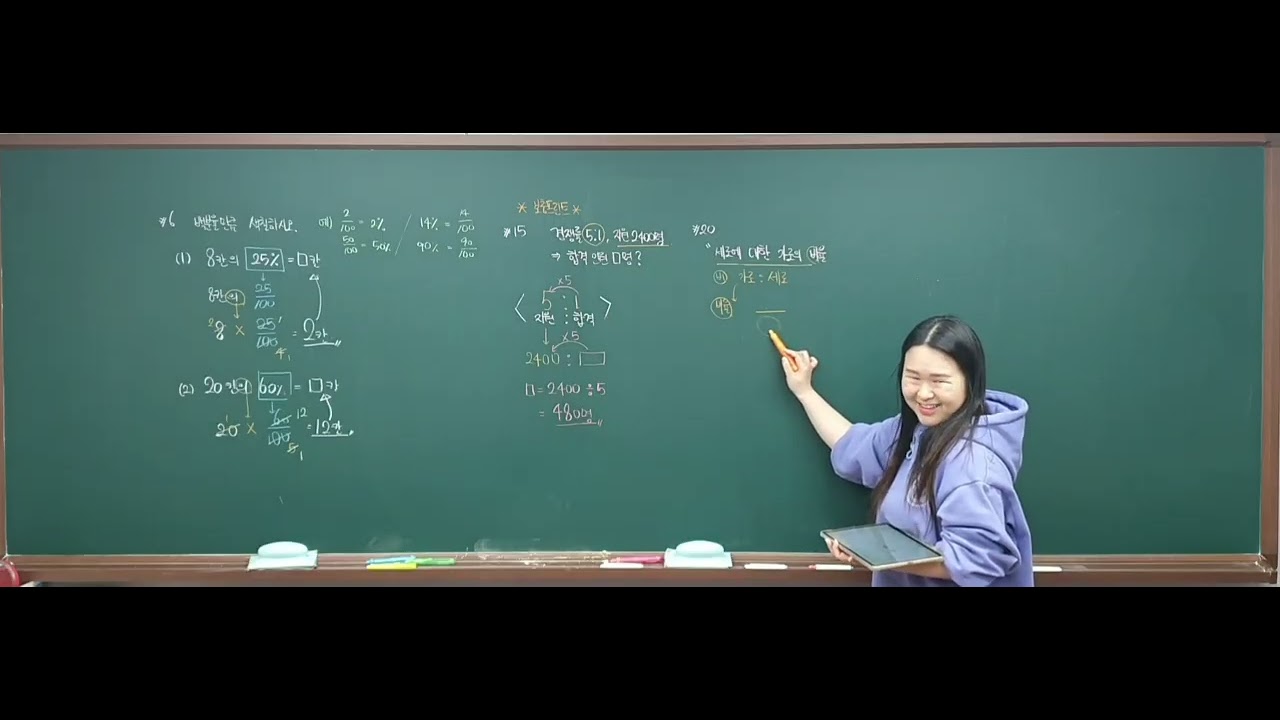 #6 백분율만큼 색칠하시오. 예) 2/100 = 2% / 14% = 14/100
50/100 = 50% / 90% = 90/100
(1) 8칸의 25% = □칸
8칸의 25/100
8 × 25/100 = 2칸
(2) 20칸의 60% = □칸
20 × 60/100 = 12칸
* 보충프린트 *
#15 경쟁률 5:1, 지원 2400명
⇒ 합격 인원 □명?
×5
5 : 1
지원 : 합격
×5
2400 : □
□ = 2400 ÷ 5
= 480명
#20
"세로에 대한 가로의 비율
비 가로 : 세로
비율